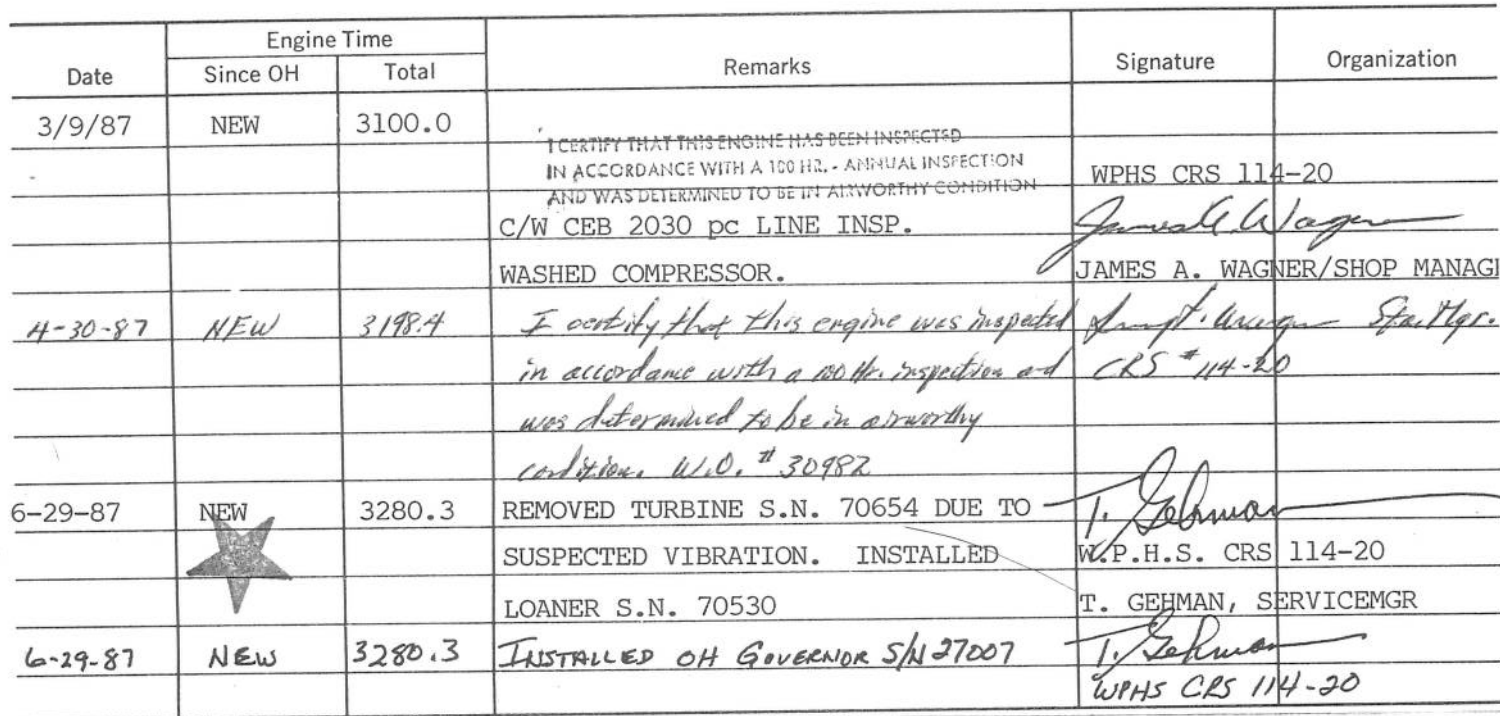 Engine Time
Date Since OH Total Remarks Signature Organization
3/9/87 NEW 3100.0
I CERTIFY THAT THIS ENGINE HAS BEEN INSPECTED
IN ACCORDANCE WITH A 100 HR. - ANNUAL INSPECTION
AND WAS DETERMINED TO BE IN AIRWORTHY CONDITION
WPHS CRS 114-20
C/W CEB 2030 pc LINE INSP. James A Wagner
WASHED COMPRESSOR. JAMES A. WAGNER/SHOP MANAG
4-30-87 NEW 3198.4 I certify that this engine was inspected Sta. Mgr.
in accordance with a 100 Hr. inspection and CRS # 114-20
was determined to be in airworthy
condition. W.O. # 30982
6-29-87 NEW 3280.3 REMOVED TURBINE S.N. 70654 DUE TO T. Gehman
SUSPECTED VIBRATION. INSTALLED W.P.H.S. CRS 114-20
LOANER S.N. 70530 T. GEHMAN, SERVICEMGR
6-29-87 NEW 3280.3 INSTALLED OH GOVERNOR S/N 27007 T. Gehman
WPHS CRS 114-20